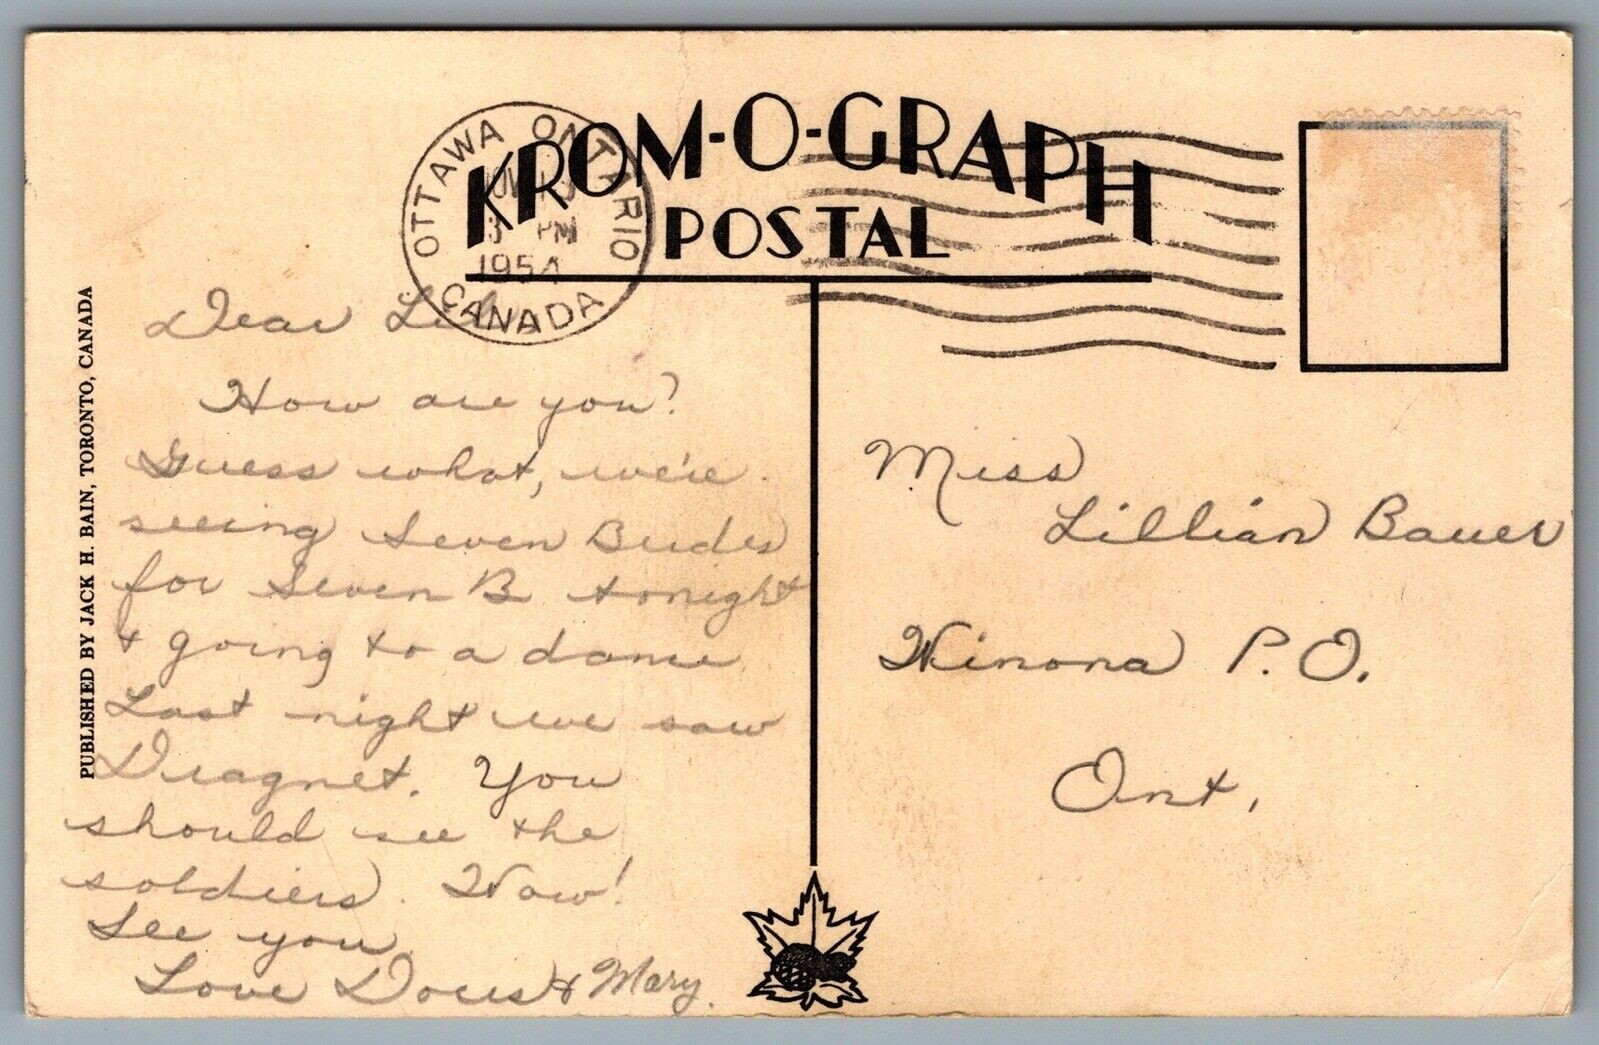 KROM-O-GRAPH
POSTAL
OTTAWA ONTARIO
PM
1954
CANADA
PUBLISHED BY JACK H. BAIN, TORONTO, CANADA
Dear Lil,
How are you?
Guess what, we're
seeing Seven Brides
for Seven B tonight
+ going to a dance.
Last night we saw
Dragnet. You
should see the
soldiers. Wow!
See you,
Love Doris + Mary.
Miss
Lillian Bauer
Winona P.O.
Ont.